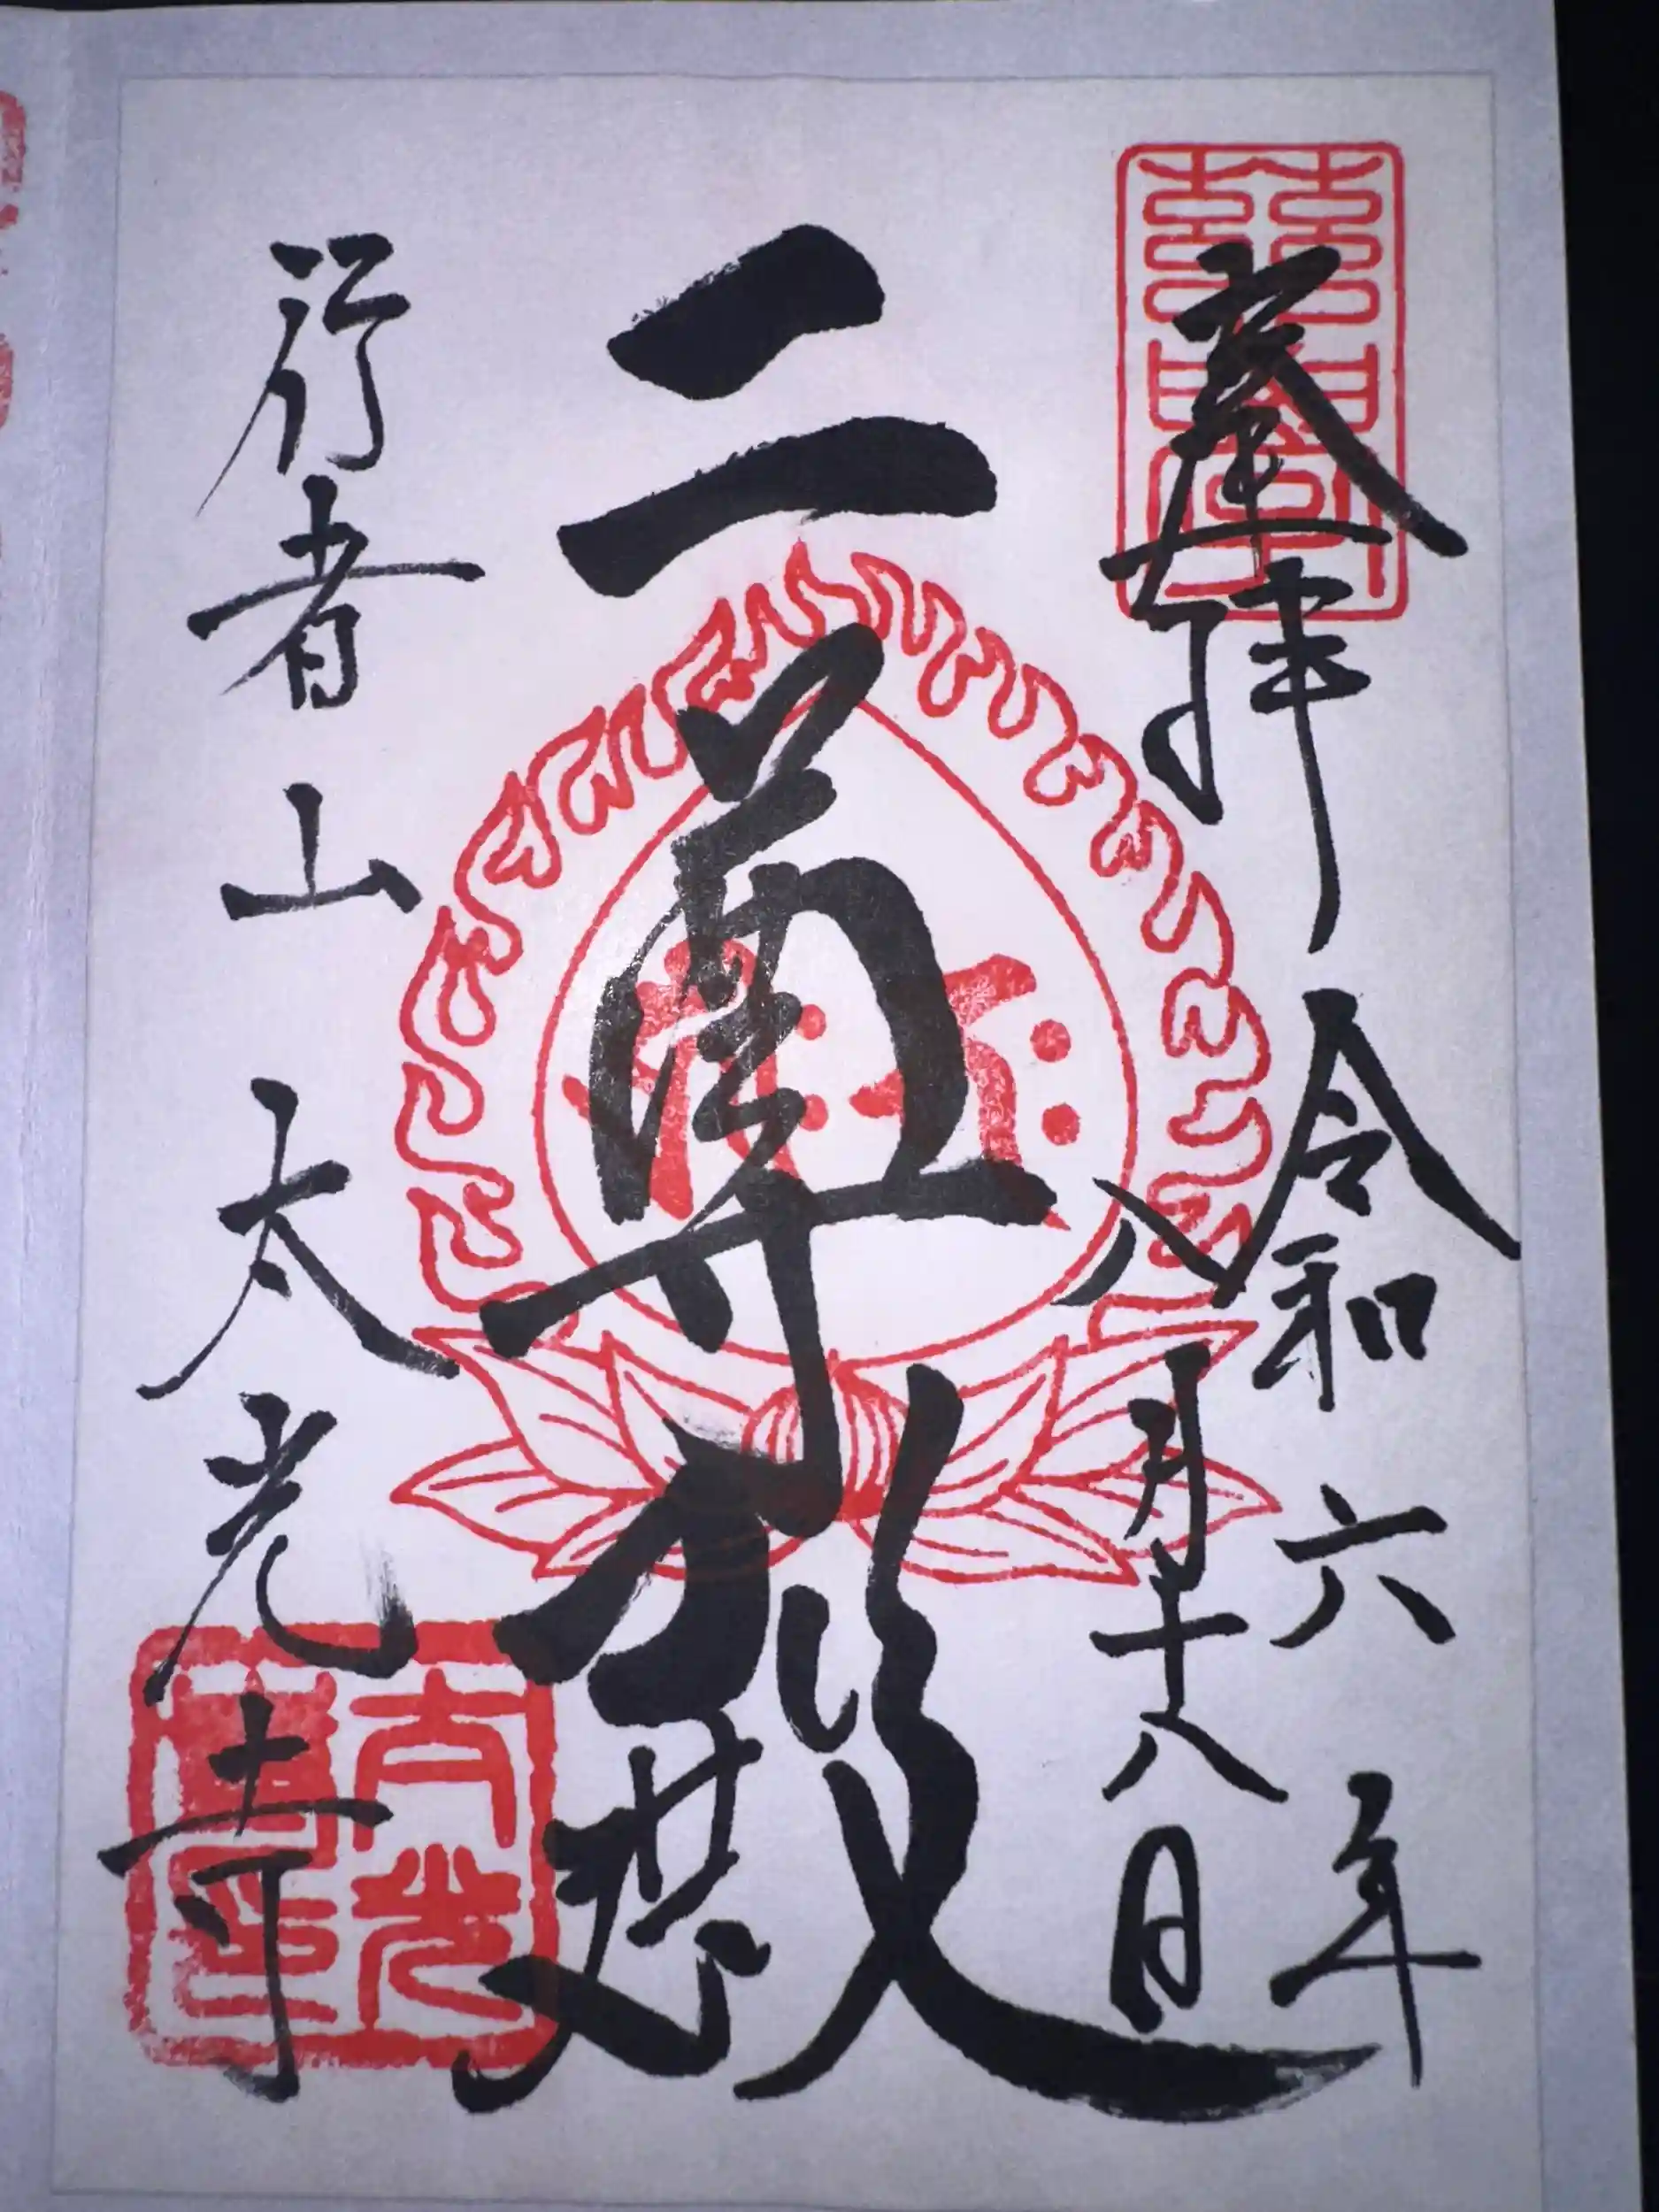 奉拝
令和六年
八月十八日
二尊殿
行者山太光寺